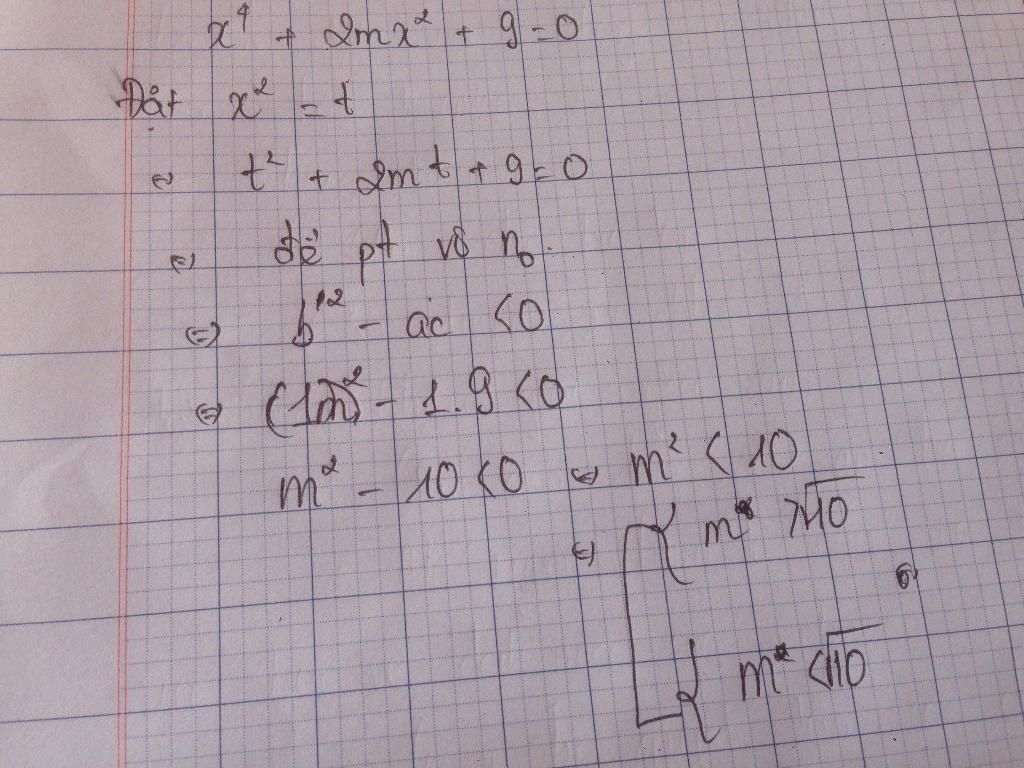 x⁴ + 2mx² + 9 = 0
Đặt x² = t
⇔ t² + 2mt + 9 = 0
⇔ để pt vô n₀
⇔ b'² - ac < 0
⇔ (1m)² - 1.9 < 0
m² - 10 < 0 ⇔ m² < 10
⇔ m > √10
m < √10